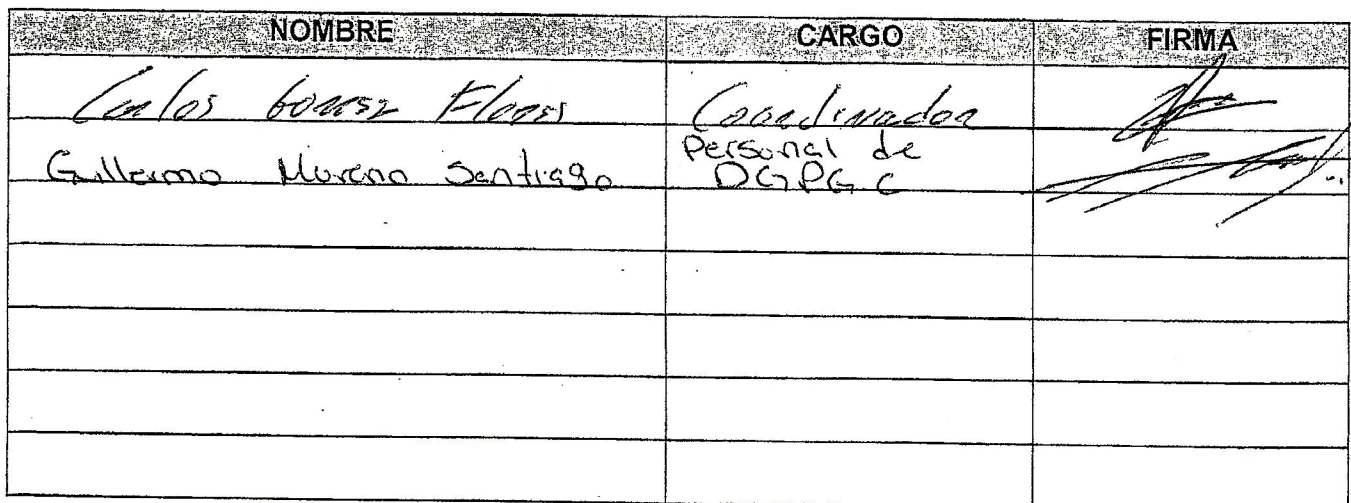 NOMBRE CARGO FIRMA
Carlos Gomez Flores Coordinador
Guillermo Moreno Santiago Personal de
DGPGC